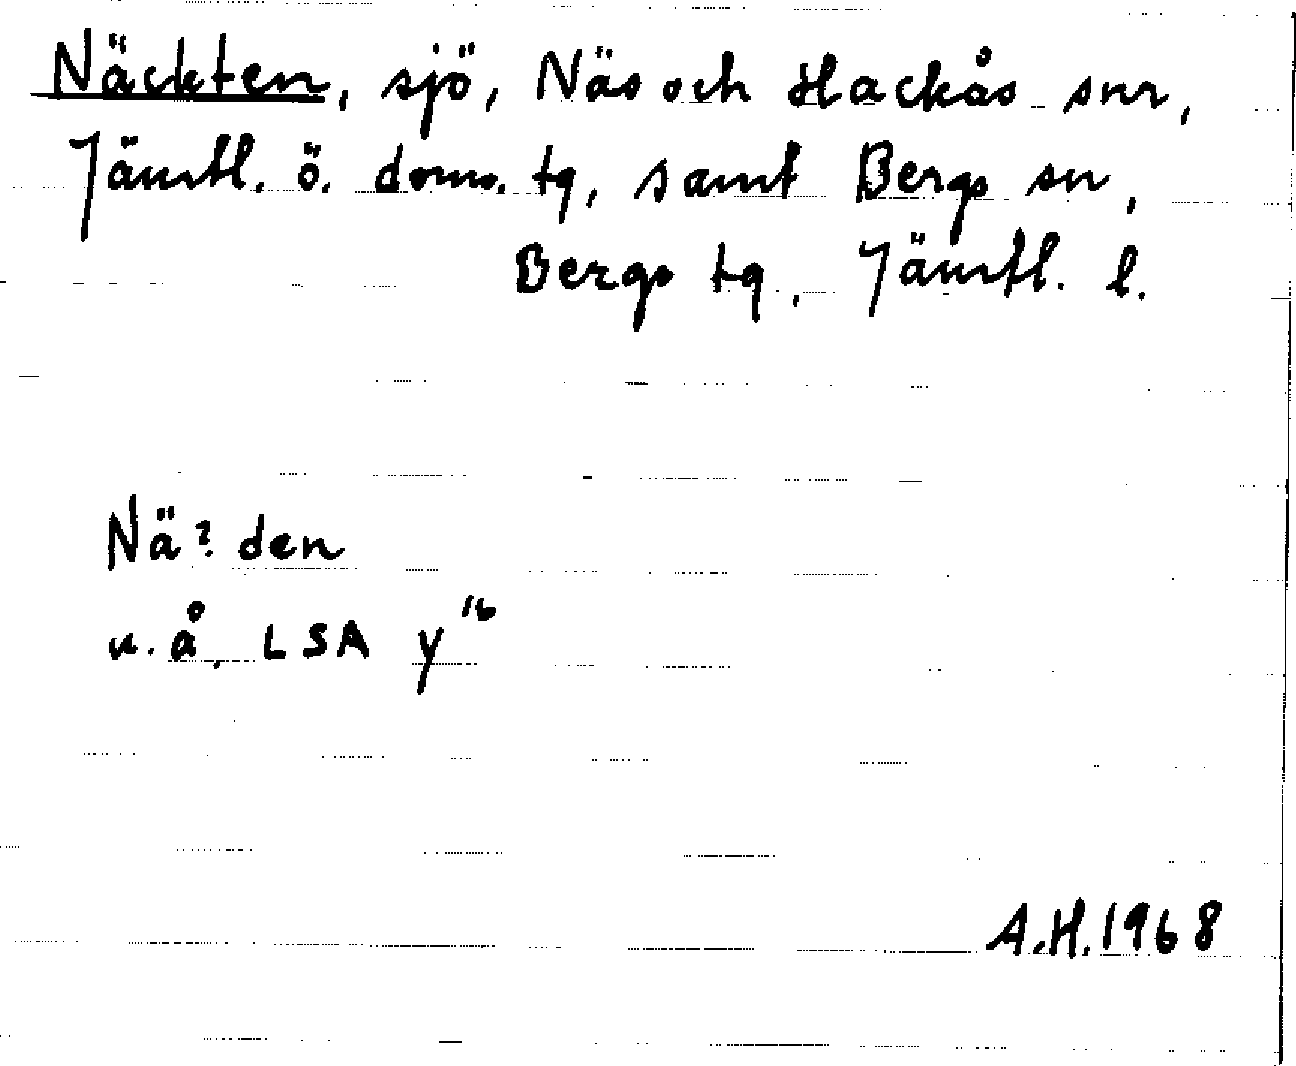 Näckten, sjö, Näs och Hackås snr,
Jämtl. ö. doms. tg, samt Bergs sn,
Bergs tg, Jämtl. l.
Nä? den
u. å, LSA y16
A.H. 1968